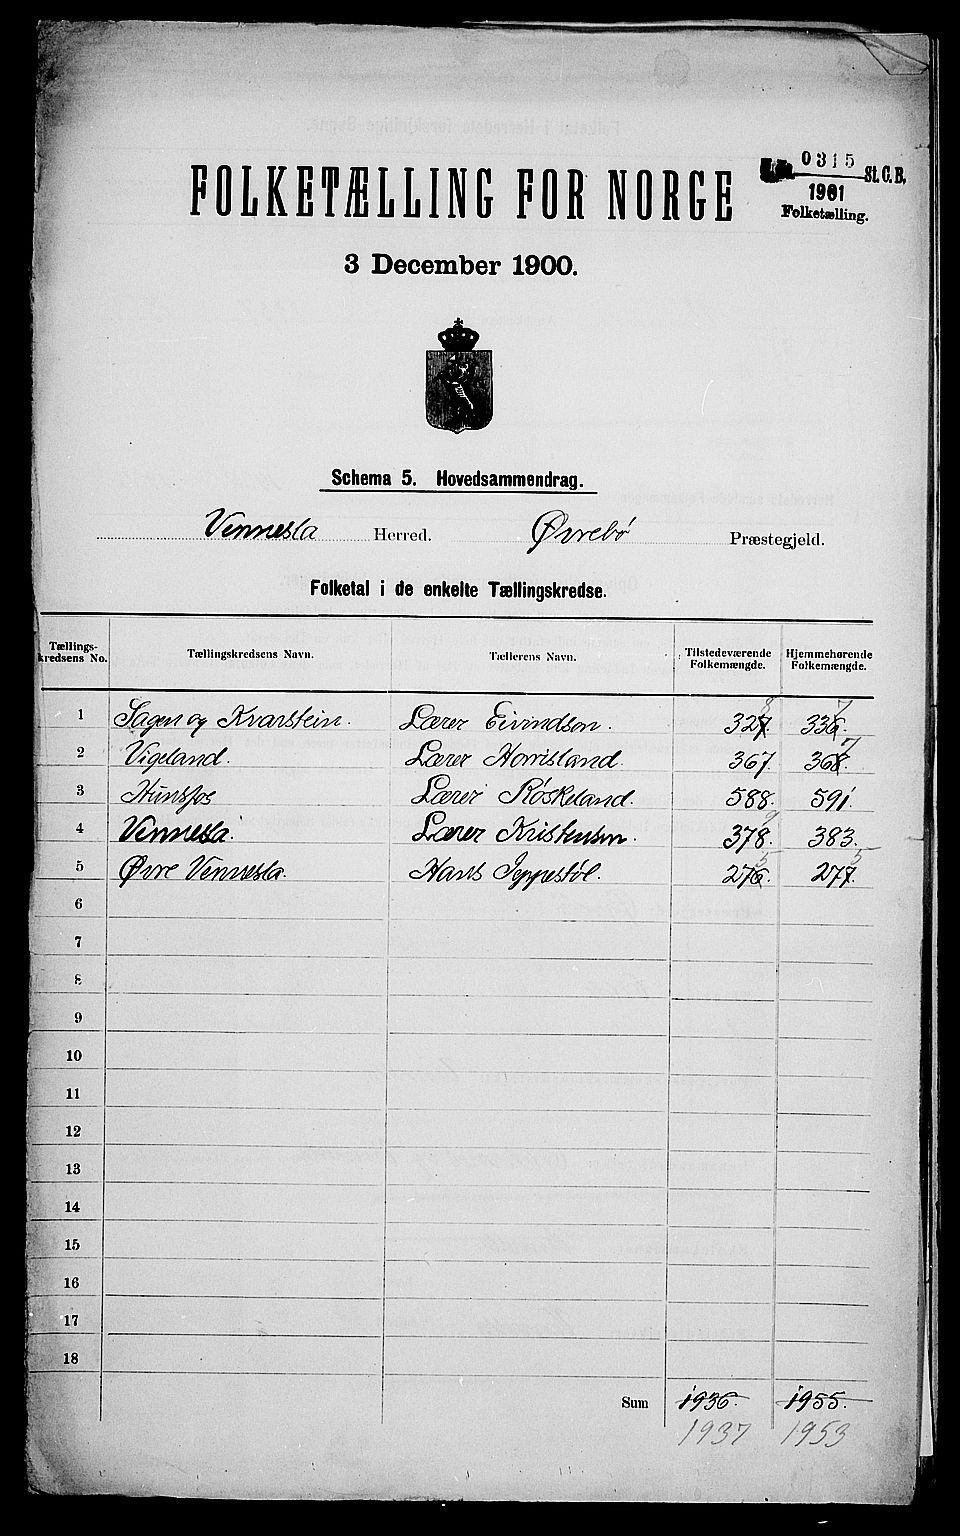 0315
St. C. B.
1901
Folketælling.
FOLKETÆLLING FOR NORGE
3 December 1900.
Schema 5. Hovedsammendrag.
Vennesla Herred. Øvrebø Præstegjeld.
Folketal i de enkelte Tællingskredse.
Tællings-kredsens No. Tællingskredsens Navn. Tællerens Navn. Tilstedeværende Folkemængde. Hjemmehørende Folkemængde.
8 7
1 Sagen og Kvarstein. Lærer Eivindson. 327. 336.
7
2 Vigeland. Lærer Horrisland. 367. 368.
3 Hunsfos Lærer Røskeland. 588. 591.
9
4 Vennesla. Lærer Kristensen. 378. 383.
5 5
5 Øvre Vennesla. Hans Jeppestøl. 276. 277.
6
7
8
9
10
11
12
13
14
15
16
17
18
Sum 1936. 1955.
1937 1953